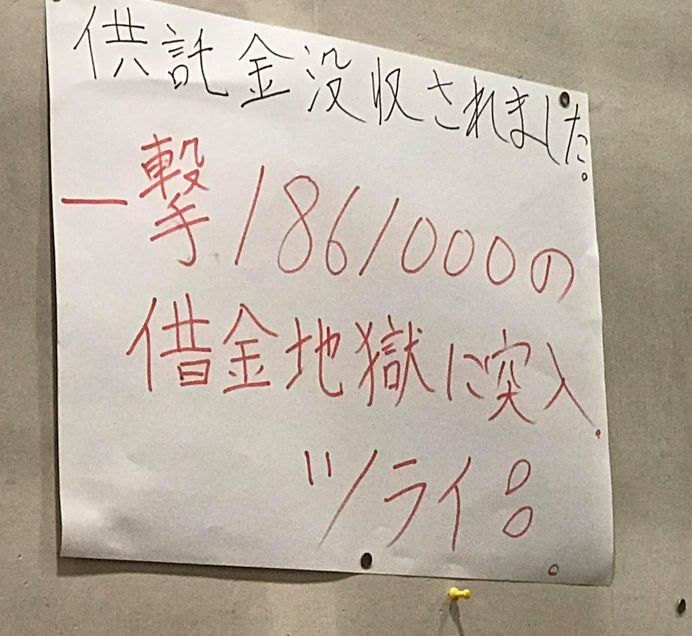 供託金没収されました。
一撃1861000の
借金地獄に突入.
ツライ8。